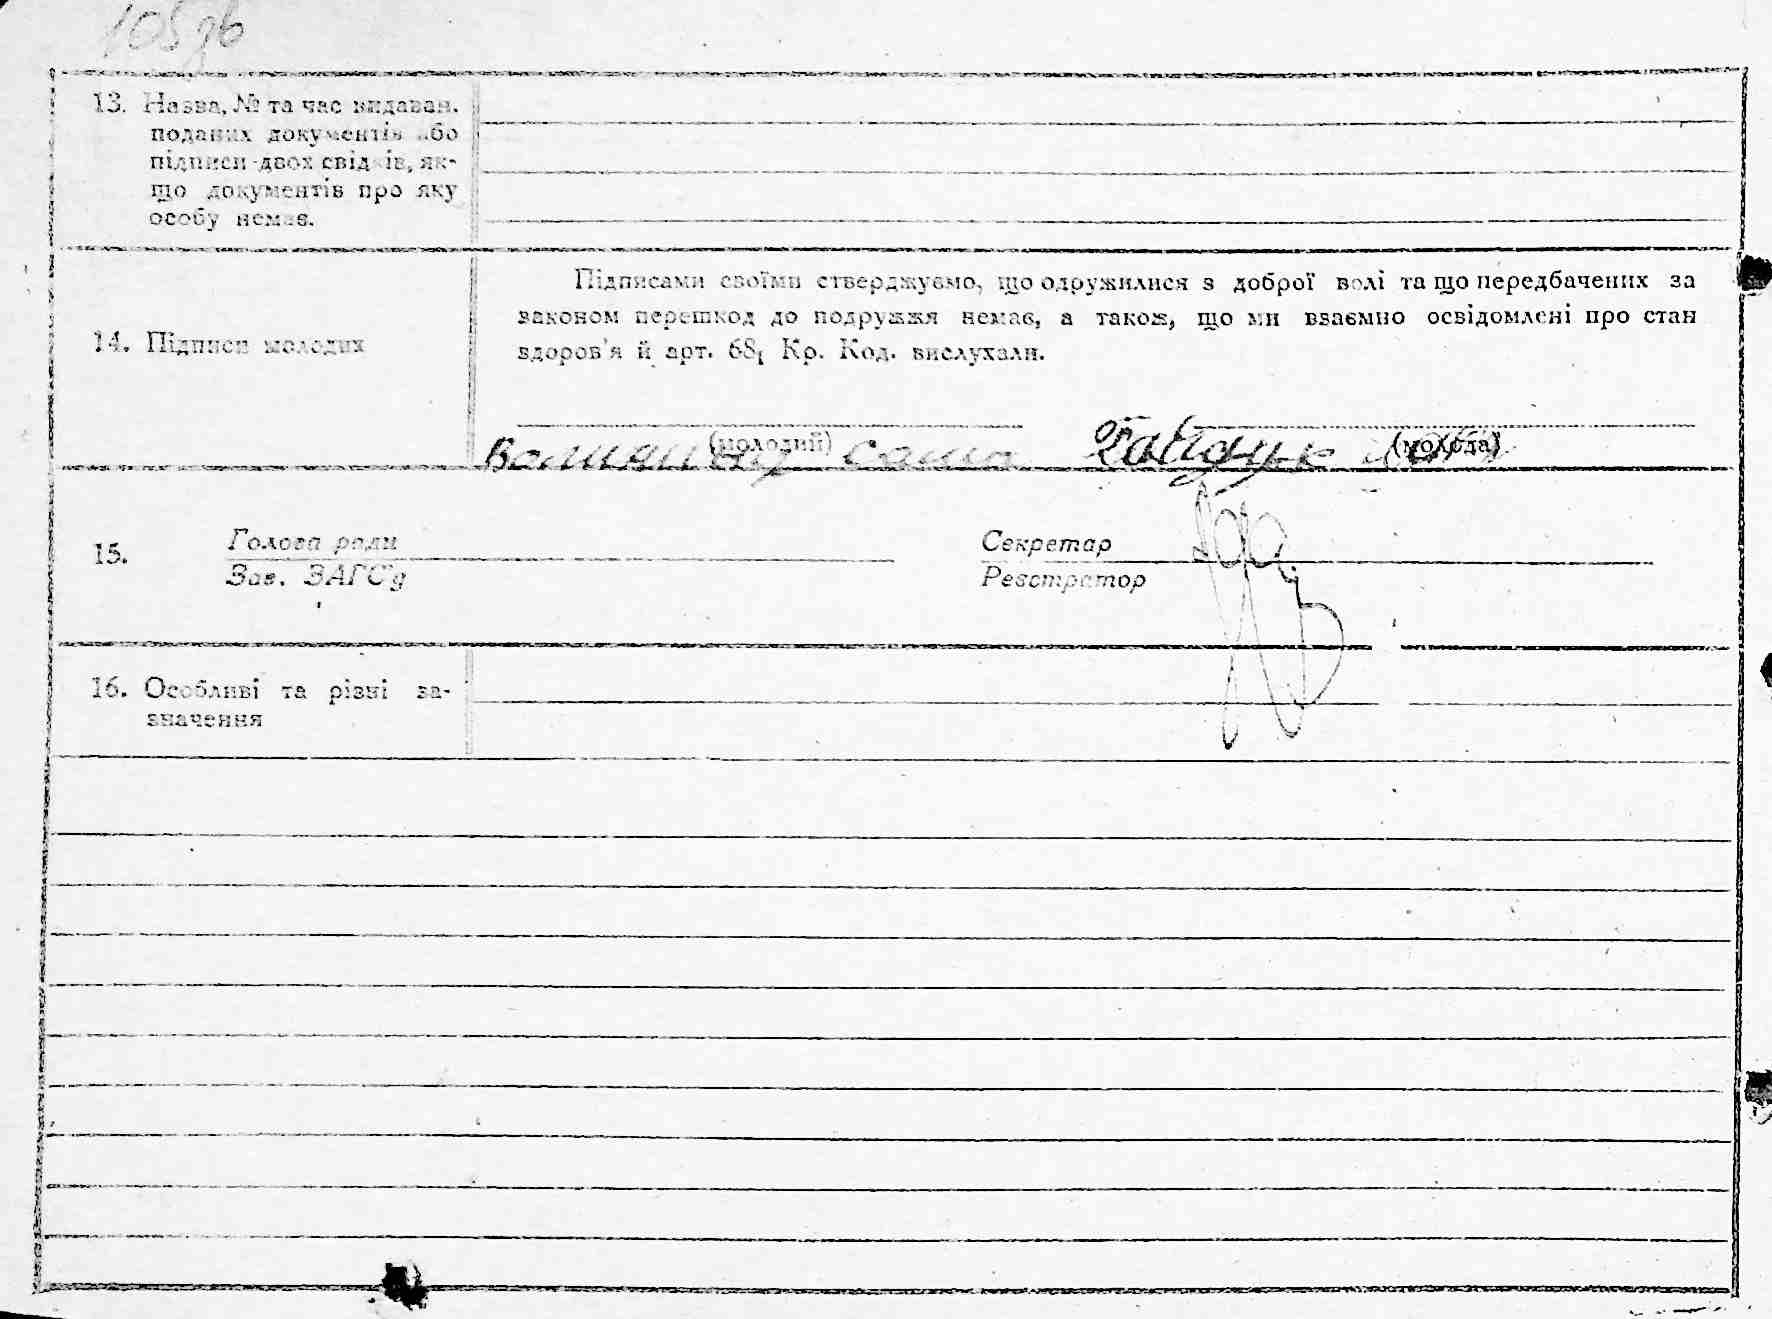 105зв
13. Назва, № та час видаван.
поданих документів або
підписи двох свідків, як-
що документів про яку
особу немає.
Підписами своїми стверджуємо, що одружилися з доброї волі та що передбачених за
законом перешкод до подружжя немає, а також, що ми взаємно освідомлені про стан
здоров'я й арт. 68₁ Кр. Код. вислухали.
14. Підписи молодих
(молодий) (молода)
Саша Гайдук
15. Голова ради Секретар
Зав. ЗАГС'у Реєстратор
16. Особливі та різні за-
значення